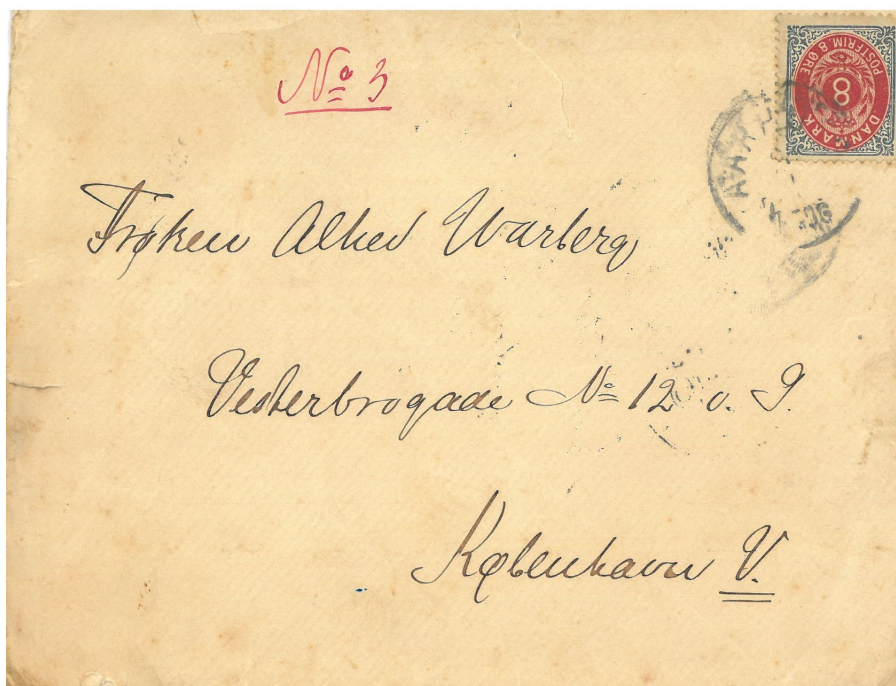 Nº 3
DANMARK
POSTFRIM. 8 ØRE
8
Frøken Alhed Warberg
Vesterbrogade Nº 12 o. G.
København V.